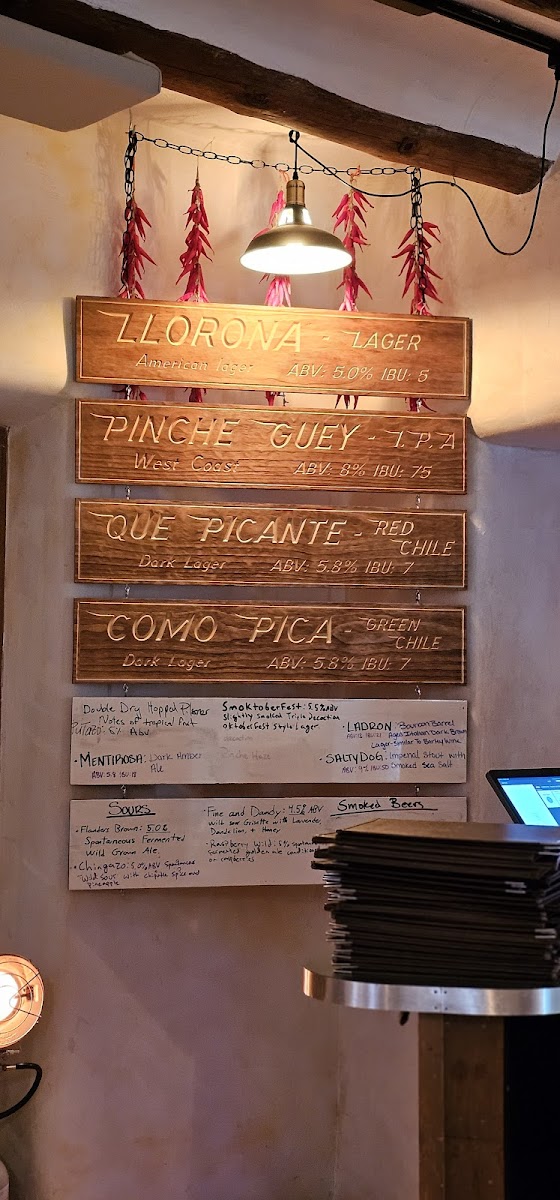 LLORONA - LAGER
American lager ABV: 5.0% IBU: 5
PINCHE GUEY - I.P.A
West Coast ABV: 8% IBU: 75
QUE PICANTE - RED
CHILE
Dark Lager ABV: 5.8% IBU: 7
COMO PICA - GREEN
CHILE
Dark Lager ABV: 5.8% IBU: 7
Double Dry Hopped
Notes of tropical fruit
ABV
• MENTIROSA: Dark Amber
Ale
SmoktoberFest: 5.5% ABV
Slightly Smoked Triple Decoction
Oktoberfest Style Lager
• LADRON: Bourbon Barrel
Aged Italian Dark Brown
Lager-Similar To Barley Wine
• SALTY DOG: Imperial Stout with
Smoked Sea Salt
SOURS
• Flanders Brown: 5.0%
Spontaneous Fermented
Wild Grown Ale
• Chingazo: 5.0% ABV Spontaneous
Wild Sour with chipotle spice and
pineapple
• Fine and Dandy: 4.5% ABV
Wild sour Grisette with Lavender,
Dandelion, + Honey
• Raspberry Wild: 6%
golden ale
on raspberries
Smoked Beers